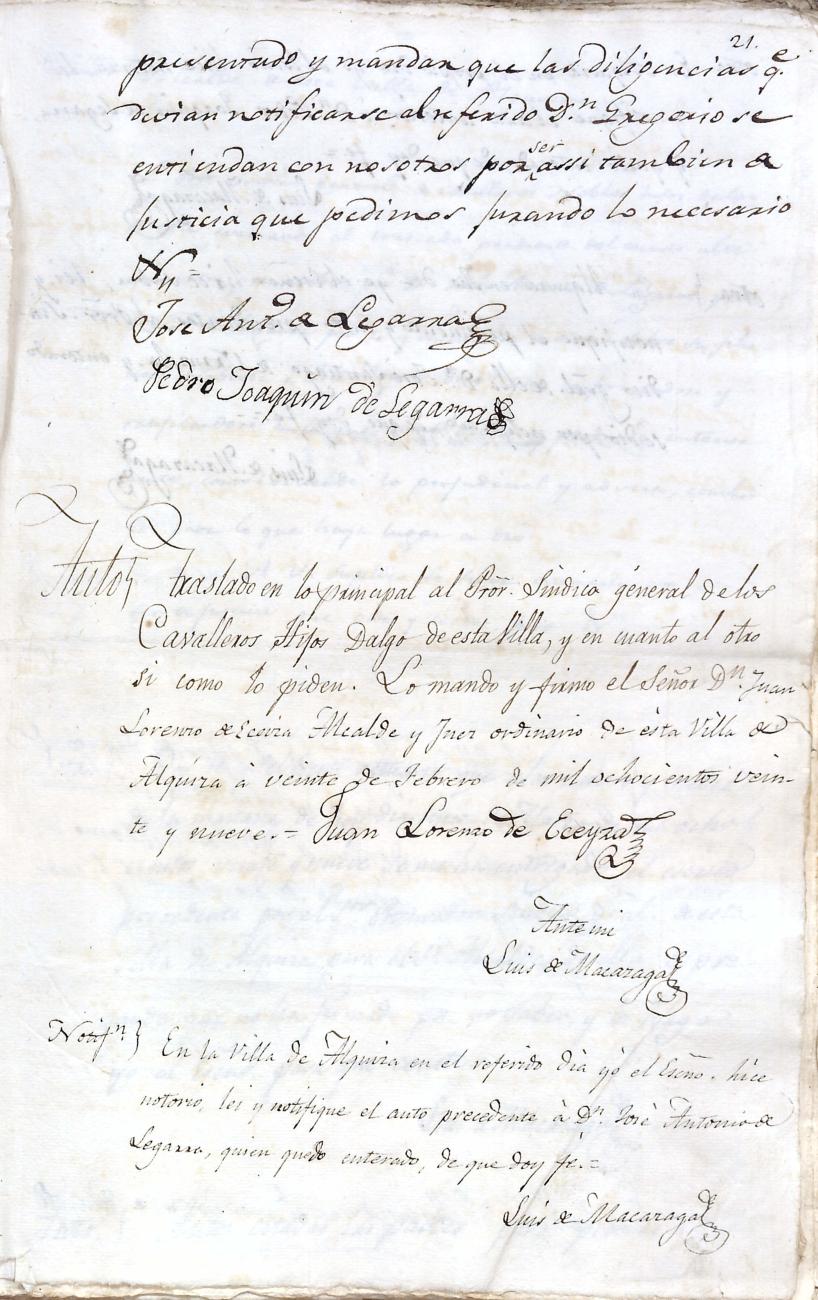 21.
presentado y mandar que las diligencias q.e
devian notificarse al referido D.n Gregorio se
entiendan con nosotros por ser assi tambien de
Justicia que pedimos jurando lo necesario
Jose Ant.o de Legarra
Pedro Joaquin de Legarra
Auto} Traslado en lo principal al Pror. Sindico géneral de los
Cavalleros Hijos Dalgo de esta Villa, y en cuanto al otro
si como lo piden. Lo mando y firmo el Señor D.n Juan
Lorenzo de Eceiza Alcalde y Juez ordinario de ésta Villa de
Alquiza à veinte de Febrero de mil ochocientos vein-
te y nueve.= Juan Lorenzo de Eceyza
Ante mi
Luis de Macazaga
Notif.n} En la Villa de Alquiza en el referido dia yó el Esño. hice
notorio, lei y notifique el auto precedente à D.n José Antonio de
Legarra, quien quedo enterado, de que doy fé.=
Luis de Macazaga